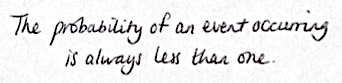 The probability of an event occurring
is always less than one.